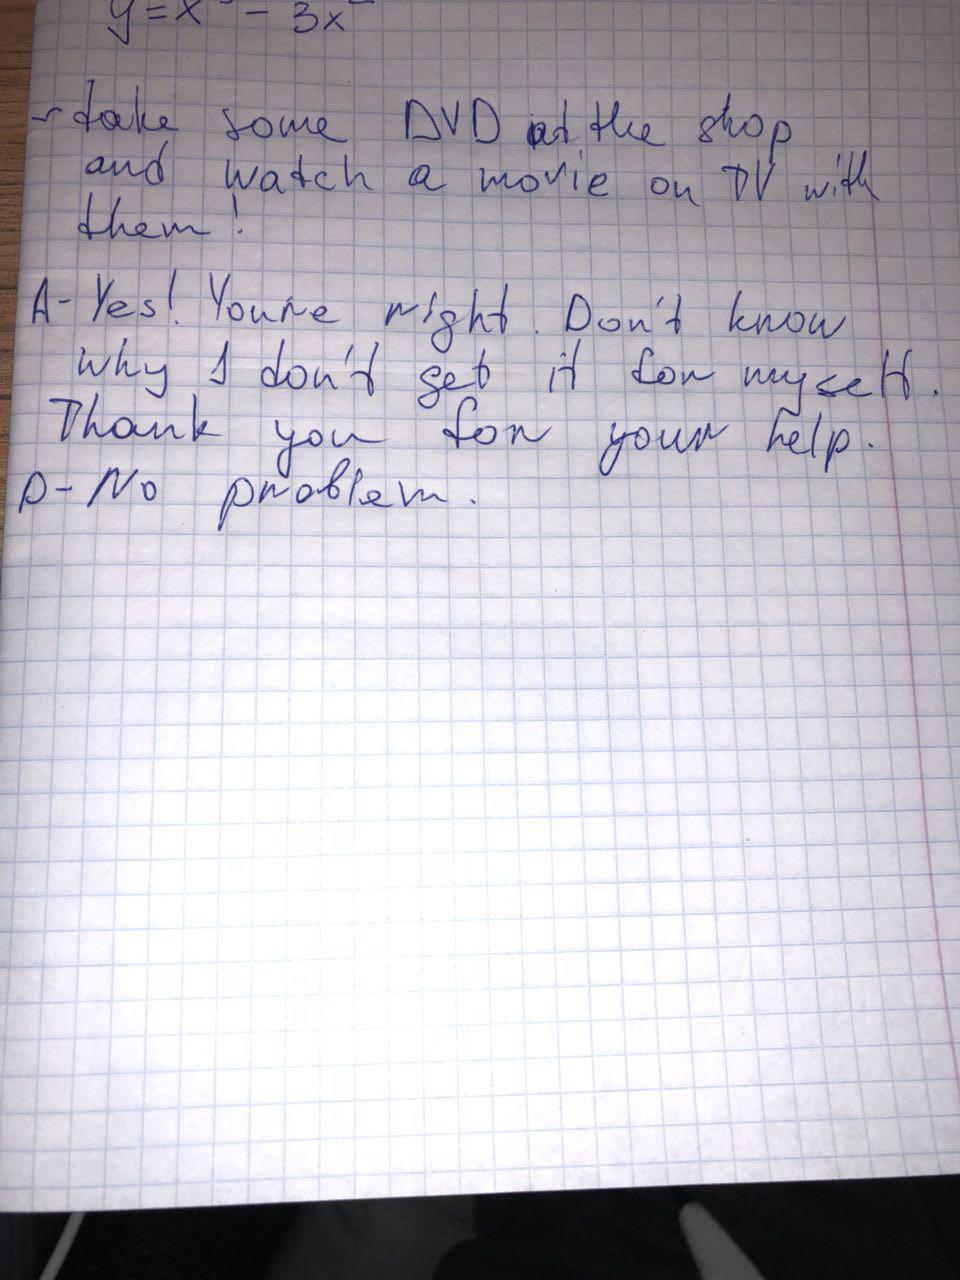 y = x - 3x
- take some DVD at the shop
and watch a movie on TV with
them!
A- Yes! Youre right. Don't know
why I don't get it for myself.
Thank you for your help.
D- No problem.